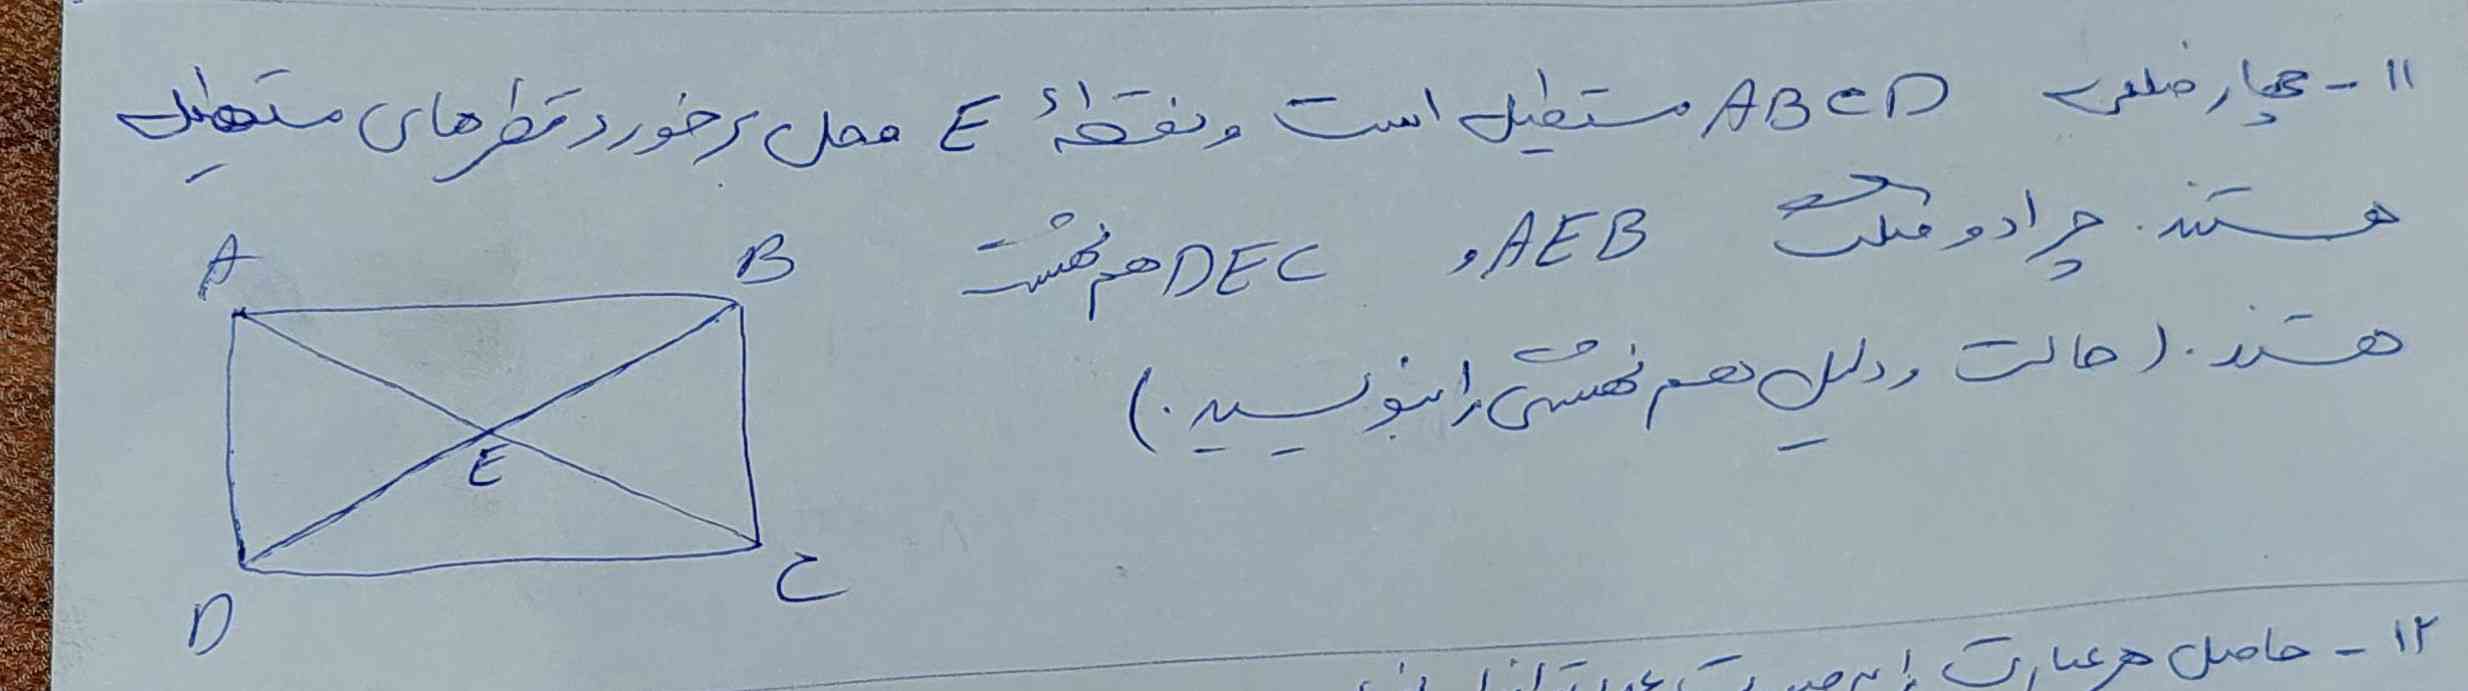 ۱۱ - چهار ضلعی ABCD مستطیل است و نقطهٔ E محل برخورد قطرهای مستطیل
هستند. چرا دو مثلث AEB و DEC هم نهشت
هستند. (حالت و دلیل هم نهشتی را بنویسید.)
A
B
E
D
C
۱۲ - حاصل هر عبارت را به صورت عدد